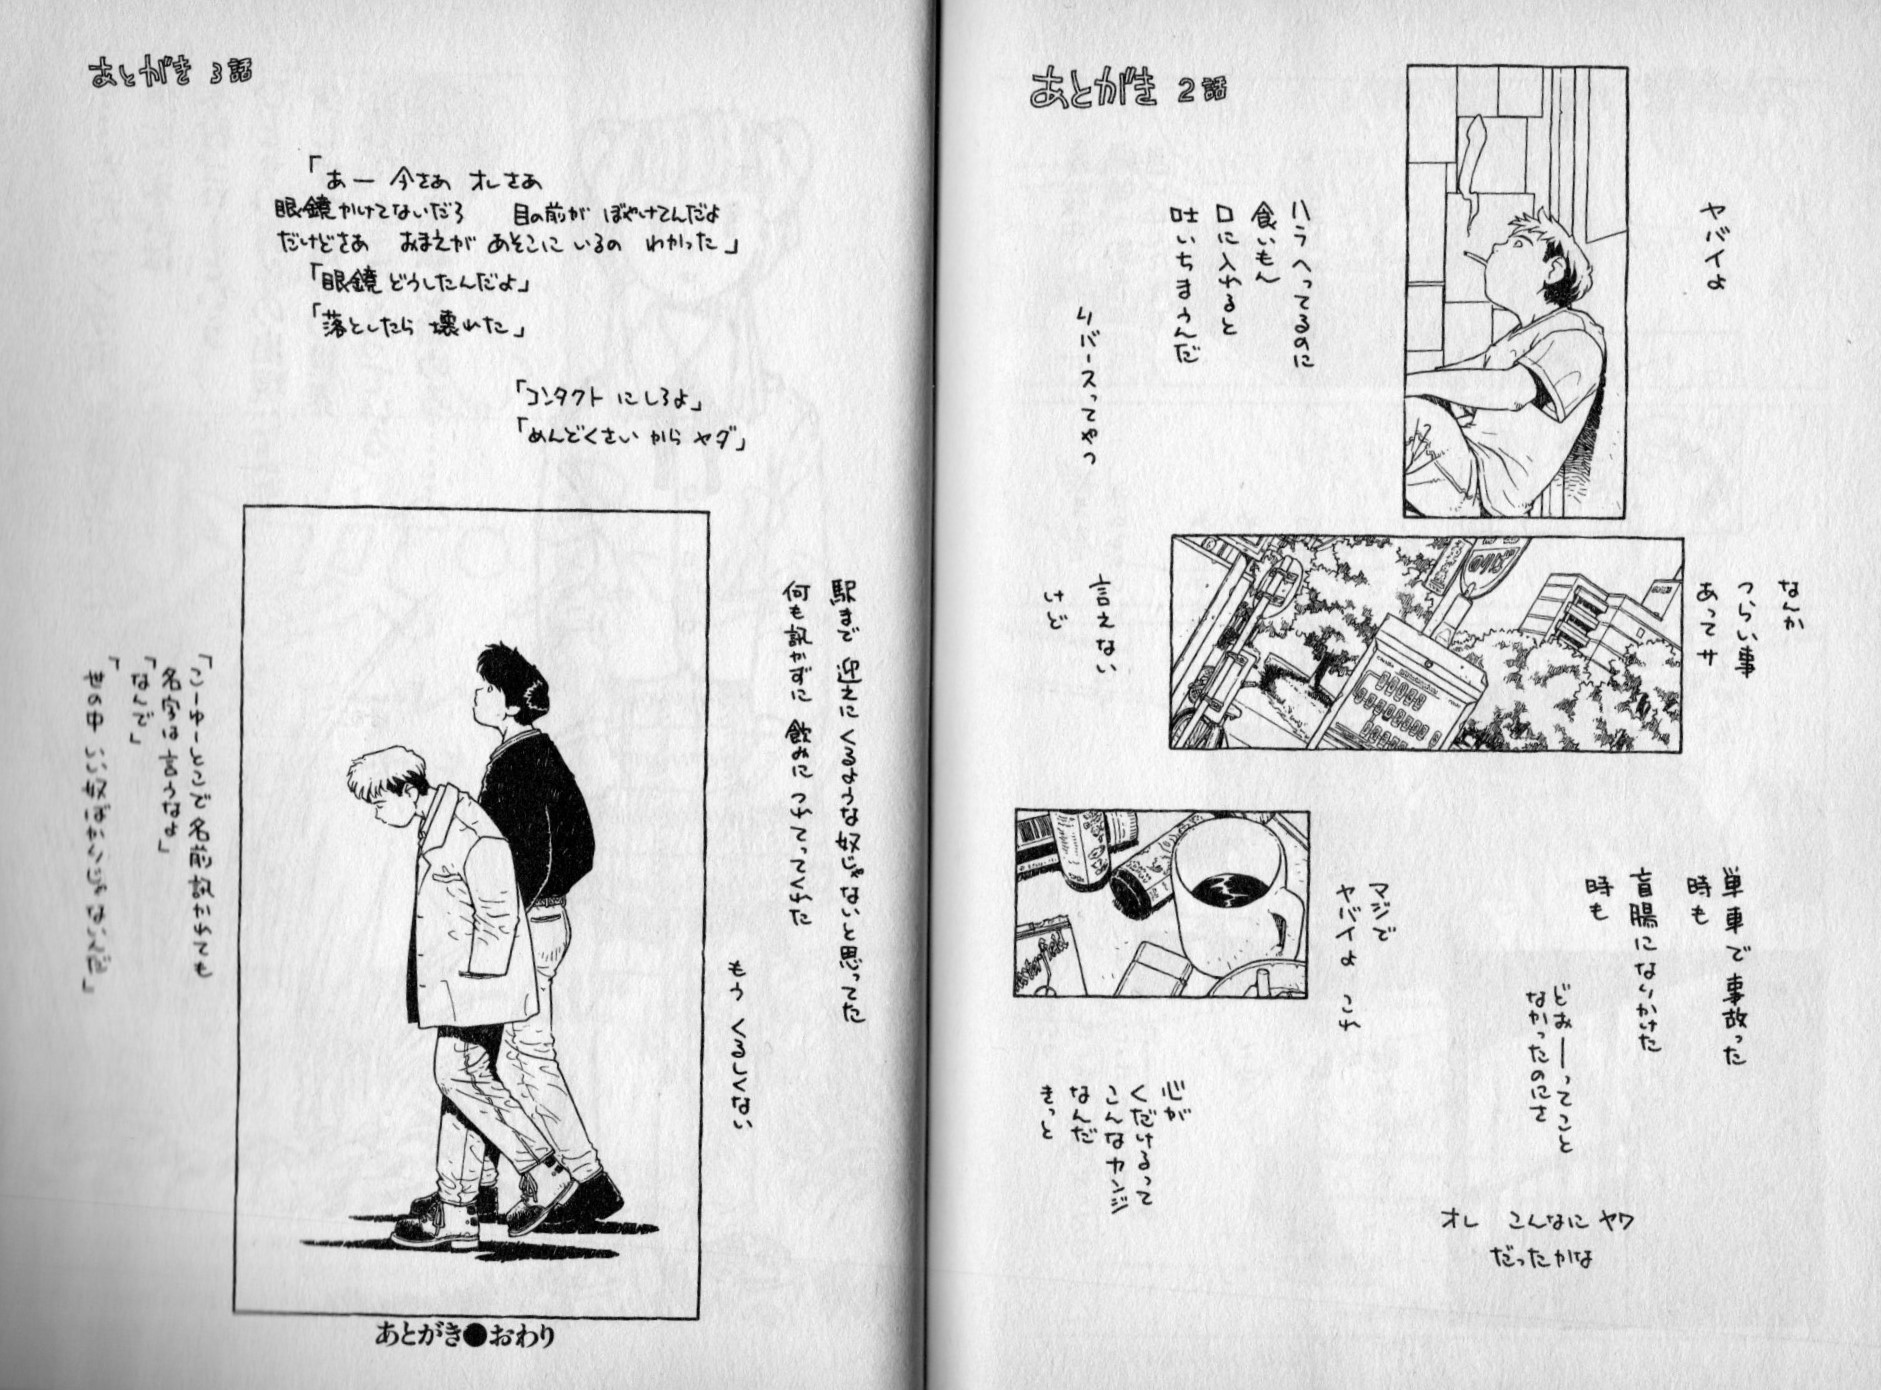 あとがき 2話
ヤバイよ
ハラ へってるのに
食いもん
口に入れると
吐いちまぅんだ
リバースってやつ
なんか
つらい事
あってサ
言えない
けど
単車で事故った
時も
盲腸になりかけた
時も
どぉーってこと
なかったのにさ
オレ こんなに ヤワ
だったかな
マジで
ヤバイよ これ
心が
くだけるって
こんなカンジ
なんだ
きっと
あとがき 3話
「あー 今さぁ オレさぁ
眼鏡かけてないだろ 目の前が ぼやけてんだよ
だけどさぁ おまえが あそこに いるの わかった」
「眼鏡 どうしたんだよ」
「落としたら 壊れた」
「コンタクト にしろよ」
「めんどくさい から ヤダ」
駅まで 迎えに くるような奴じゃないと思ってた
何も訊かずに 飲みに つれてってくれた
もう くるしくない
「こーゆーとこで名前訊かれても
名字は言うなよ」
「なんで」
「世の中 いい奴ばかりじゃないんだ」
あとがき●おわり